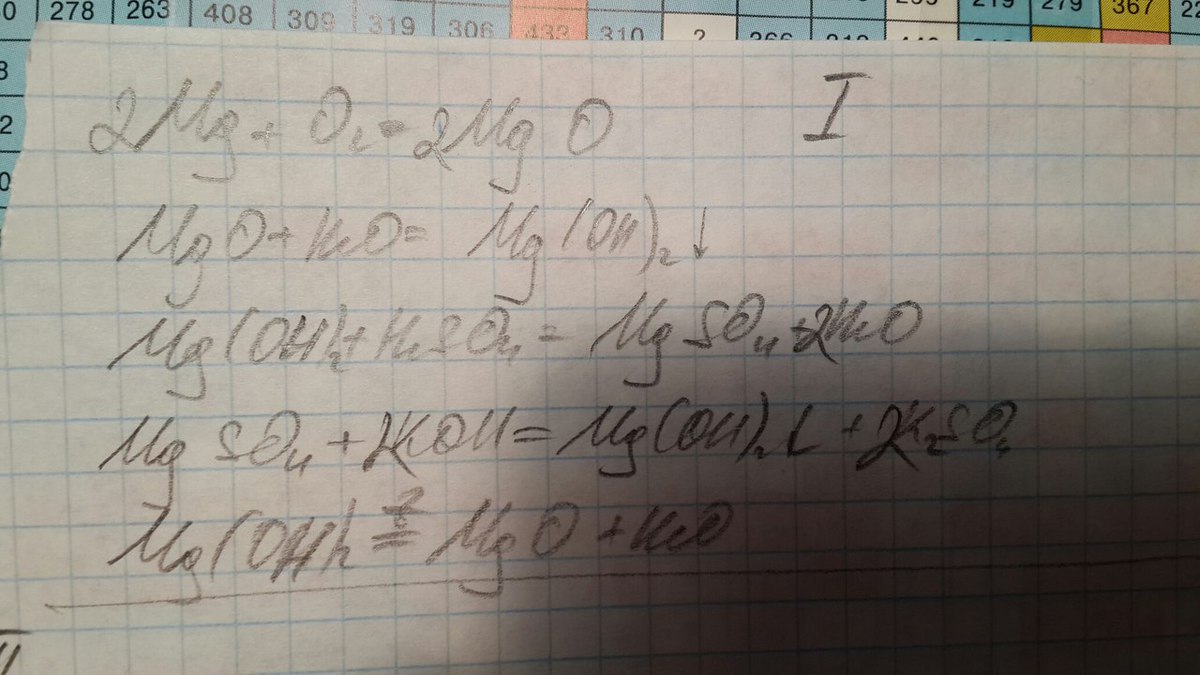 0 278 263 408 309 319 306 433 310 ? 266 219 279 367 22
8
2
0
I
2Mg + O₂ = 2MgO
MgO + H₂O = Mg(OH)₂↓
Mg(OH)₂ + H₂SO₄ = MgSO₄ + 2H₂O
MgSO₄ + 2KOH = Mg(OH)₂↓ + 2K₂SO₄
Mg(OH)₂ = MgO + H₂O
II